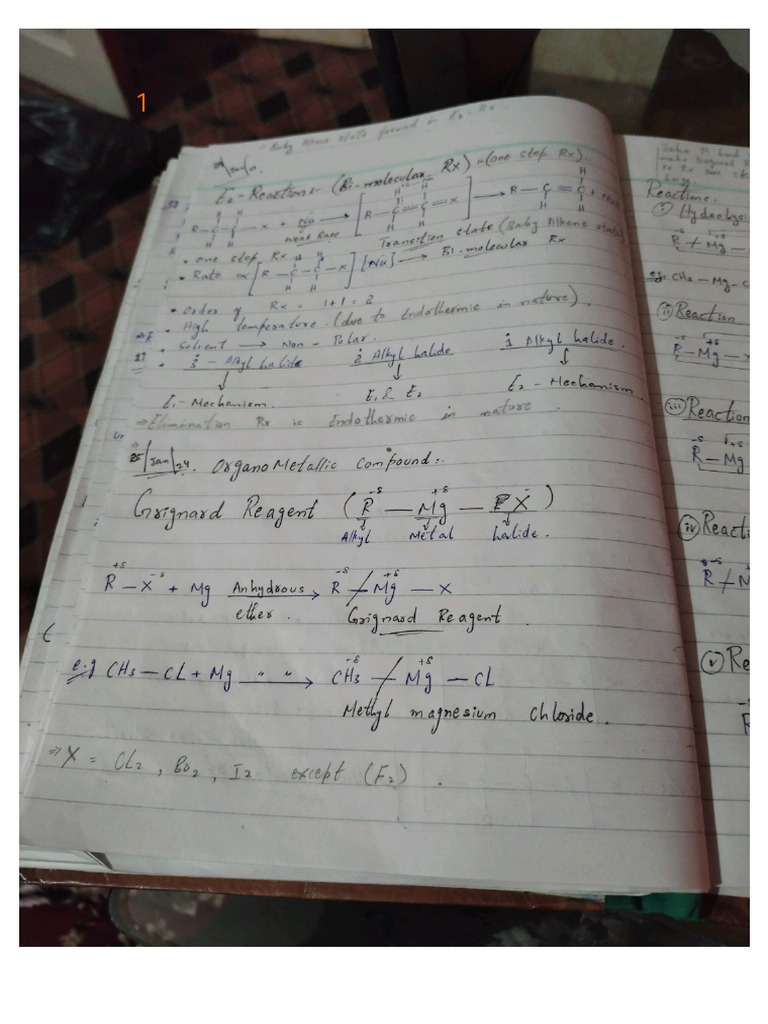 1
Baby Alkene state formed in E2-Rx.
E2-Reactions:- (Bi-molecular Rx) = (one step Rx).
R-C-C-X + Nu → [R-C=C=X] → R-C=C +
weak Base
Transition state (Baby Alkene state)
• one step Rx
• Rate ∝ [R-C-C-X] [Nu] → Bi-molecular Rx
• Order of Rx = 1+1 = 2
• High temperature. (due to Endothermic in nature).
• Solvent → Non-Polar.
• 3° - Alkyl halide 2° Alkyl halide 1° Alkyl halide.
↓ ↓ ↓
E1-Mechanism. E1 & E2 E2-Mechanism.
⇒ Elimination Rx is Endothermic in nature.
25/Jan/24. OrganoMetallic Compound:-
Grignard Reagent (R - Mg - X)
-δ +δ
Alkyl Metal halide.
+δ -δ -δ +δ
R-X + Mg Anhydrous → R-Mg-X
ether. Grignard Reagent.
-δ +δ
e.g CH3-CL + Mg " " → CH3-Mg-CL
Methyl magnesium Chloride.
⇒ X = CL2, Br2, I2 except (F2).
Reactions.
(i) Hydrolys
R-Mg-
e.g. CH3-Mg-C
(ii) Reaction
R-Mg-
(iii) Reaction
R-Mg
(iv) Reacti
R-M
(v) Re
R